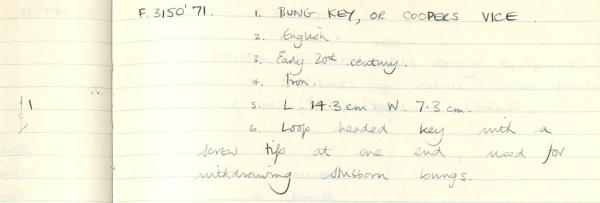 F.3150'71. 1. BUNG KEY, OR COOPERS VICE.
2. English.
3. Early 20st century.
4. Iron.
5. L. 14.3 cm W. 7.3 cm.
6. Loop headed key with a
screw tip at one end, used for
withdrawing stubborn bungs.